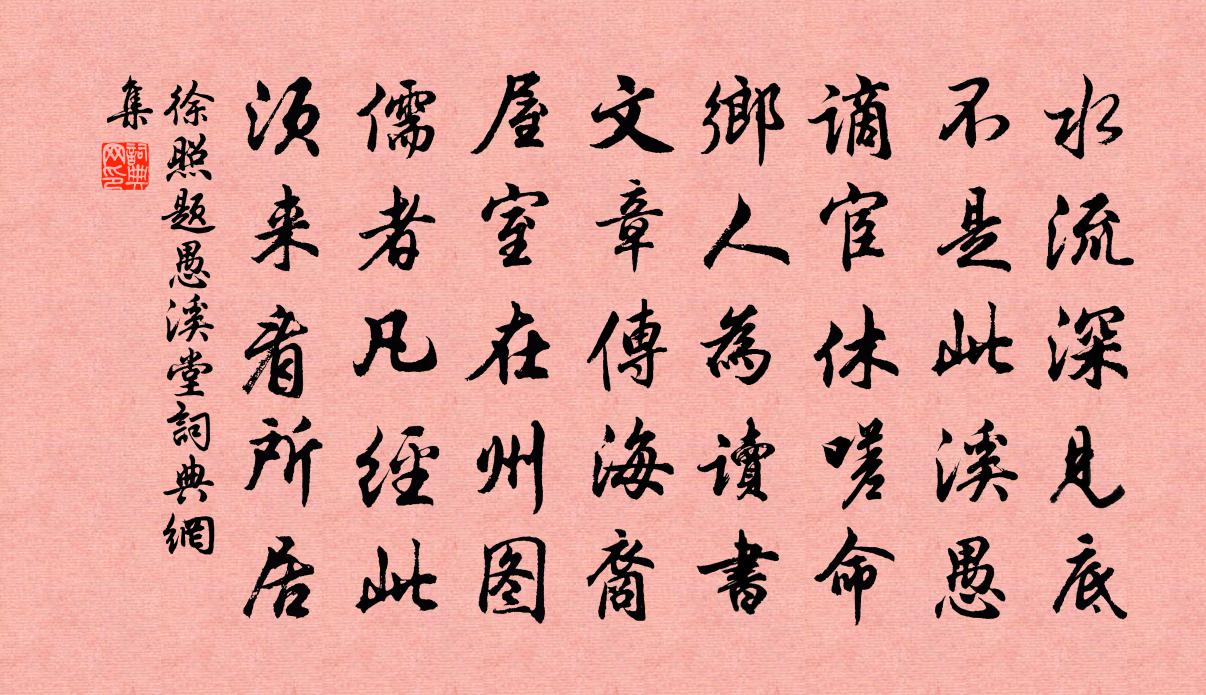 水流深见底
不是此溪愚
谪宦休嗟命
鄉人為讀書
文章傳海裔
屋室在州图
儒者凡經此
须来看所居
徐照题愚溪堂詞典網
集
詞典
网印